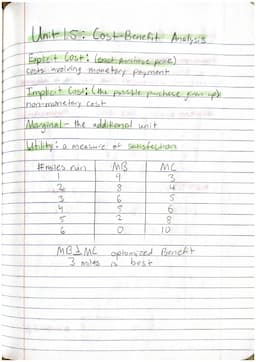 Unit 1.5: Cost-Benefit Analysis
Explicit Cost: (exact purchase price)
costs involving monetary payment
Implicit Cost: (the possible purchase given up)
non-monetary cost
Marginal - the additional unit
Utility: a measure of satisfaction
# miles run MB MC
1 9 3
2 8 4
3 6 5
4 5 6
5 2 8
6 0 10
MB ≥ MC optomized Benefit
3 miles is best